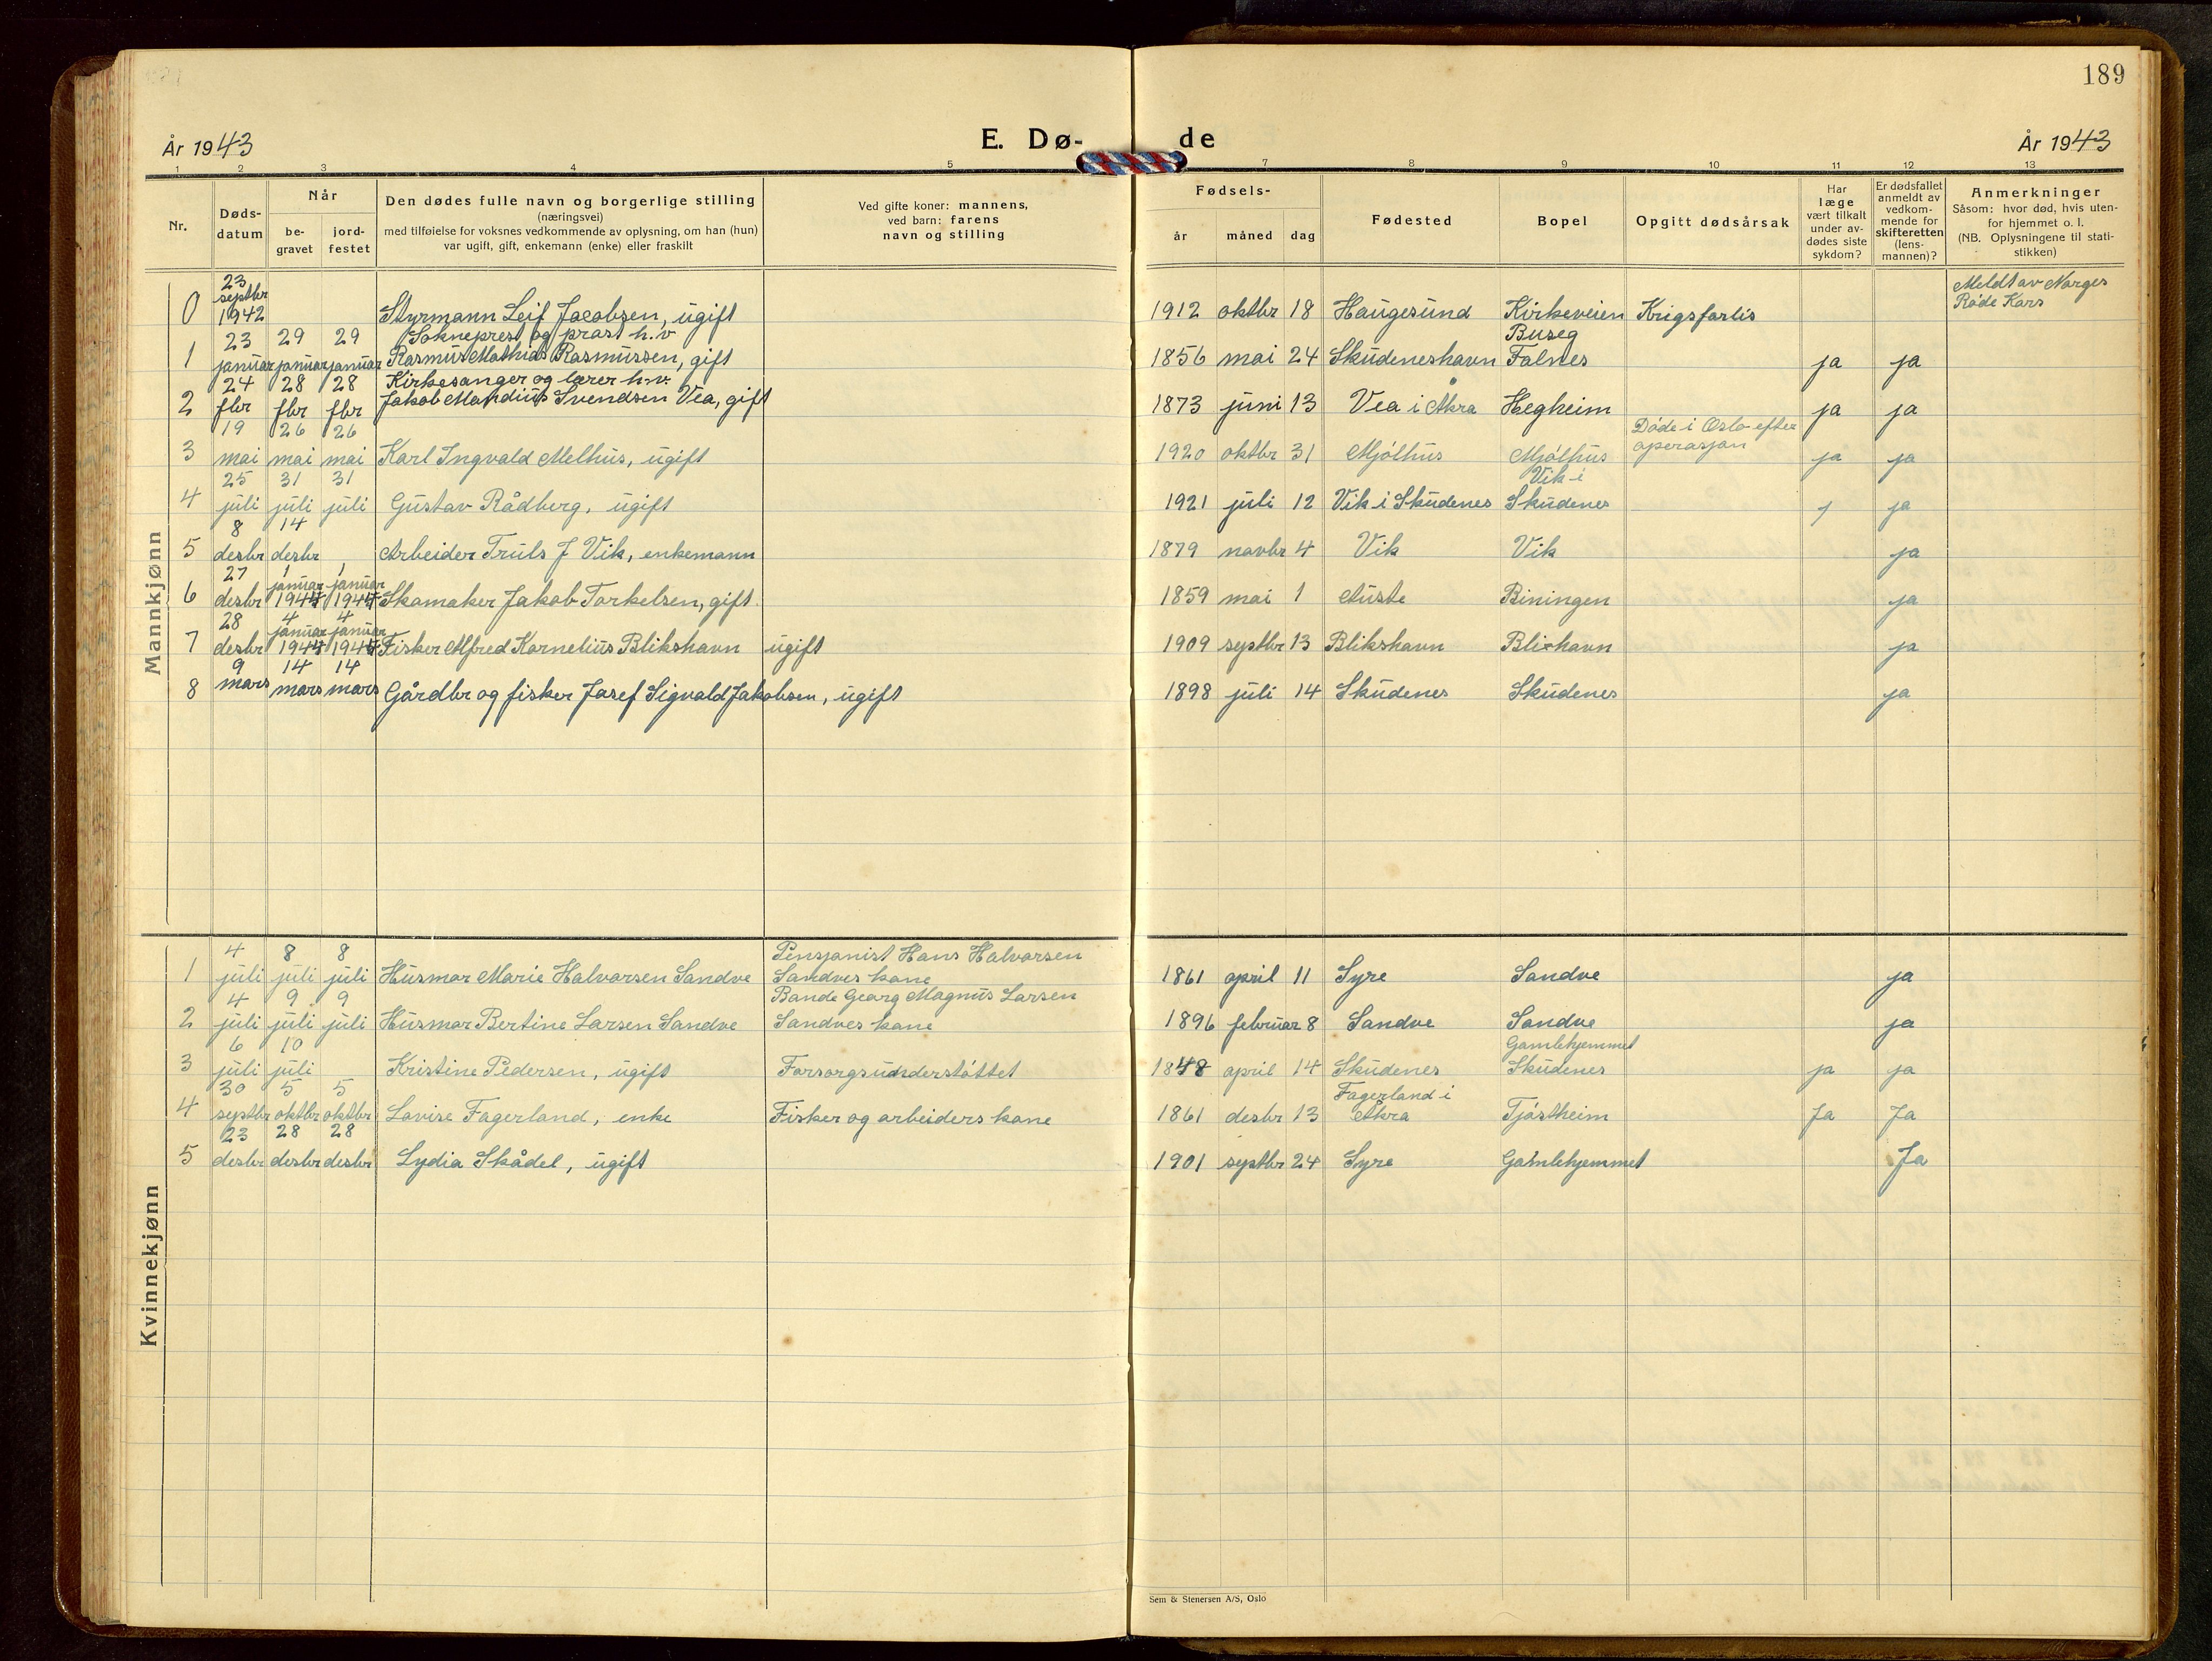 189
År 1943
E. Dø-
de
År 1943
1 2 3 4 5 7 8 9 10 11 12 13
Nr.
Døds-
datum
Når
be-
gravet
jord-
festet
Den dødes fulle navn og borgerlige stilling
(næringsvei)
med tilføielse for voksnes vedkommende av oplysning, om han (hun)
var ugift, gift, enkemann (enke) eller fraskilt
Ved gifte koner: mannens,
ved barn: farens
navn og stilling
Fødsels-
år måned dag
Fødested
Bopel
Opgitt dødsårsak
Har
læge
vært tilkalt
under av-
dødes siste
sykdom?
Er dødsfallet
anmeldt av
vedkom-
mende for
skifteretten
(lens-
mannen)?
Anmerkninger
Såsom: hvor død, hvis uten-
for hjemmet o. l.
(NB. Oplysningene til stati-
stikken)
Mannkjønn
23
septbr
0 1942 Styrmann Leif Jacobsen, ugift 1912 oktbr 18 Haugesund Kirkeveien Krigsforlis
Meldt av Norges
Røde Kors
23 29 29 Sokneprest og prost h.v Buseg
1 januar januar januar Rasmus Mathias Rasmussen, gift 1856 mai 24 Skudeneshavn Falnes ja ja
24 28 28 Kirkesanger og lærer h.v.
2 fbr fbr fbr Jakob Mandius Svendsen Vea, gift 1873 juni 13 Vea i Åkra Hegheim ja ja
19 26 26 Døde i Oslo efter
3 mai mai mai Karl Ingvald Melhus, ugift 1920 oktbr 31 Mjølhus Mjølhus operasjon ja ja
25 31 31 Vik i
4 juli juli juli Gustav Rådberg, ugift 1921 juli 12 Vik i Skudenes Skudenes j ja
8 14
5 desbr desbr Arbeider Truls J Vik, enkemann 1879 novbr 4 Vik Vik ja
27 1 1
januar januar
6 desbr 1944 1944 Skomaker Jakob Torkelsen, gift 1859 mai 1 Auste Biningen ja
28 4 4
januar januar
7 desbr 1944 1944 Fisker Alfred Kornelius Blikshavn ugift 1909 septbr 13 Blikshavn Blixhavn ja
9 14 14
8 mars mars mars Gårdbr og fisker Josef Sigvald Jakobsen, ugift 1898 juli 14 Skudenes Skudenes ja
Kvinnekjønn
4 8 8 Pensjonist Hans Halvorsen
1 juli juli juli Husmor Marie Halvorsen Sandve Sandves kone 1861 april 11 Syre Sandve ja
4 9 9 Bonde Georg Magnus Larsen
2 juli juli juli Husmor Bertine Larsen Sandve Sandves kone 1896 februar 8 Sandve Sandve ja
6 10 Gamlehjemmet
3 juli juli Kristine Pedersen, ugift Forsorgsunderstøttet 1848 april 14 Skudenes Skudenes ja ja
30 5 5 Fagerland i
4 septbr oktbr oktbr Lovise Fagerland, enke Fisker og arbeiders kone 1861 desbr 13 Åkra Tjøstheim Ja Ja
23 28 28
5 desbr desbr desbr Lydia Skådel, ugift 1901 septbr 24 Syre Gamlehjemmet Ja
Sem & Stenersen A/S, Oslo